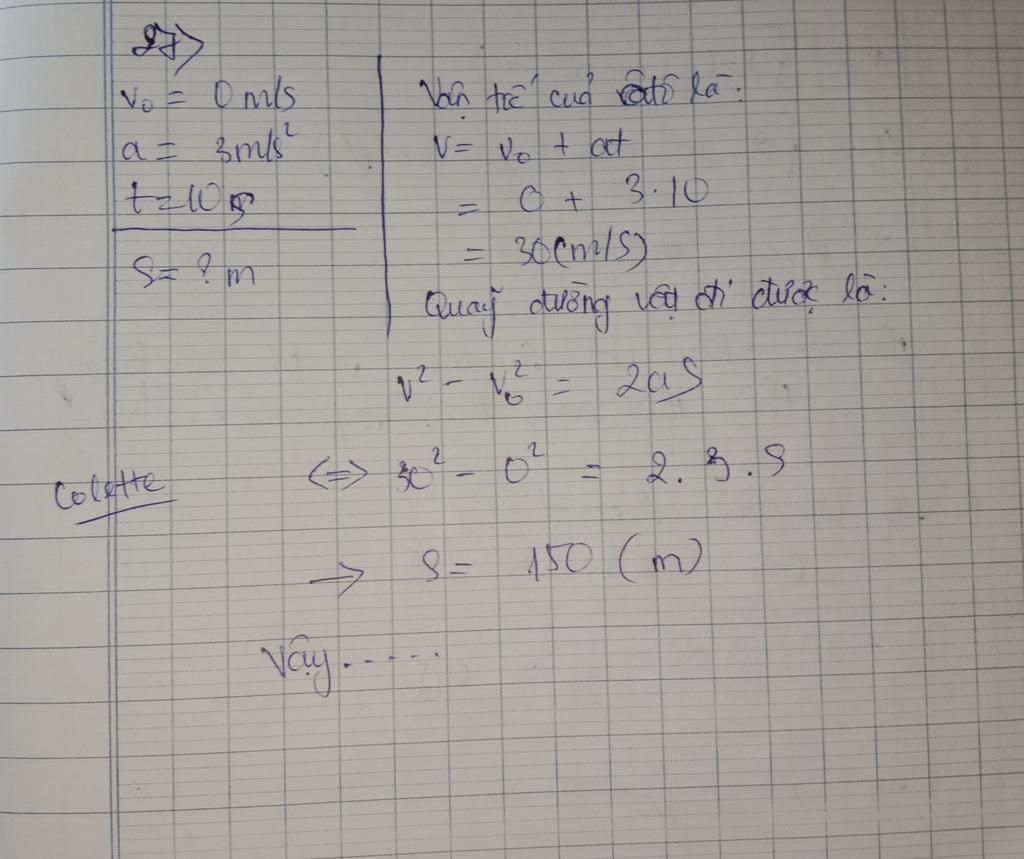 27>
v₀ = 0 m/s
a = 3m/s²
t = 10 s
S = ? m
Vận tốc của ôtô là:
v = v₀ + at
= 0 + 3.10
= 30 (m/s)
Quãng đường vật đi được là:
v² - v₀² = 2aS
⇔ 30² - 0² = 2. 3. S
Colette
→ S = 150 (m)
Vậy......